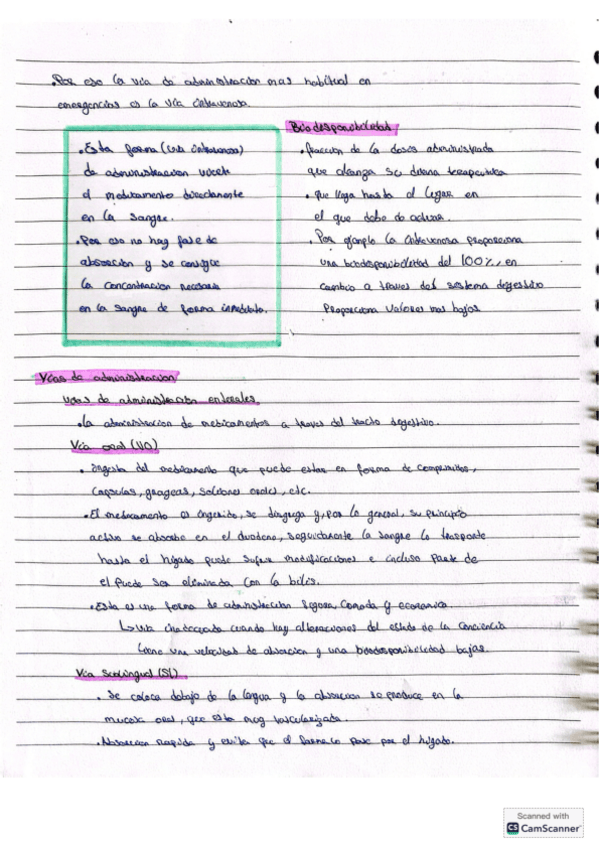 • Por eso la vía de administración mas habitual en
emergencias es la vía intravenosa.
• Esta forma (vía intravenosa)
de administración
el medicamento directamente
en la sangre.
• Por eso no hay fase de
absorción y se consigue
la concentración necesaria
en la sangre de forma inmediata.
Biodisponibilidad
• fracción de la dosis administrada
que alcanza su diana terapeutica
• que llega hasta el lugar en
el que debe de actuar.
• Por ejemplo la intravenosa proporciona
una biodisponibilidad del 100%, en
cambio a traves del sistema digestivo
Proporciona valores mas bajos
Vías de administración
Vías de administración enterales
• la administracion de medicamentos a traves del tracto digestivo.
Vía oral (VO)
• Ingesta del medicamento que puede estar en forma de comprimidos,
capsulas, grageas, soluciones orales, etc.
• El medicamento es ingerido, se disgrega y, por lo general, su principio
activo se absorbe en el duodeno, seguidamente la sangre lo trasporte
hasta el higado puede sufrir modificaciones e incluso parte de
el puede ser eliminada con la bilis.
• Esta es una forma de administración segura, comoda y economica.
↳ Vía inadecuada cuando hay alteraciones del estado de la conciencia
tiene una velocidad de absorción y una biodisponibilidad bajas.
Vía Sublingual (SL)
• Se coloca debajo de la lengua y la absorcion se produce en la
mucosa oral, que esta muy vascularizada.
• Absorcion rapida y evita que el farmaco pase por el higado.
Scanned with
CS CamScanner